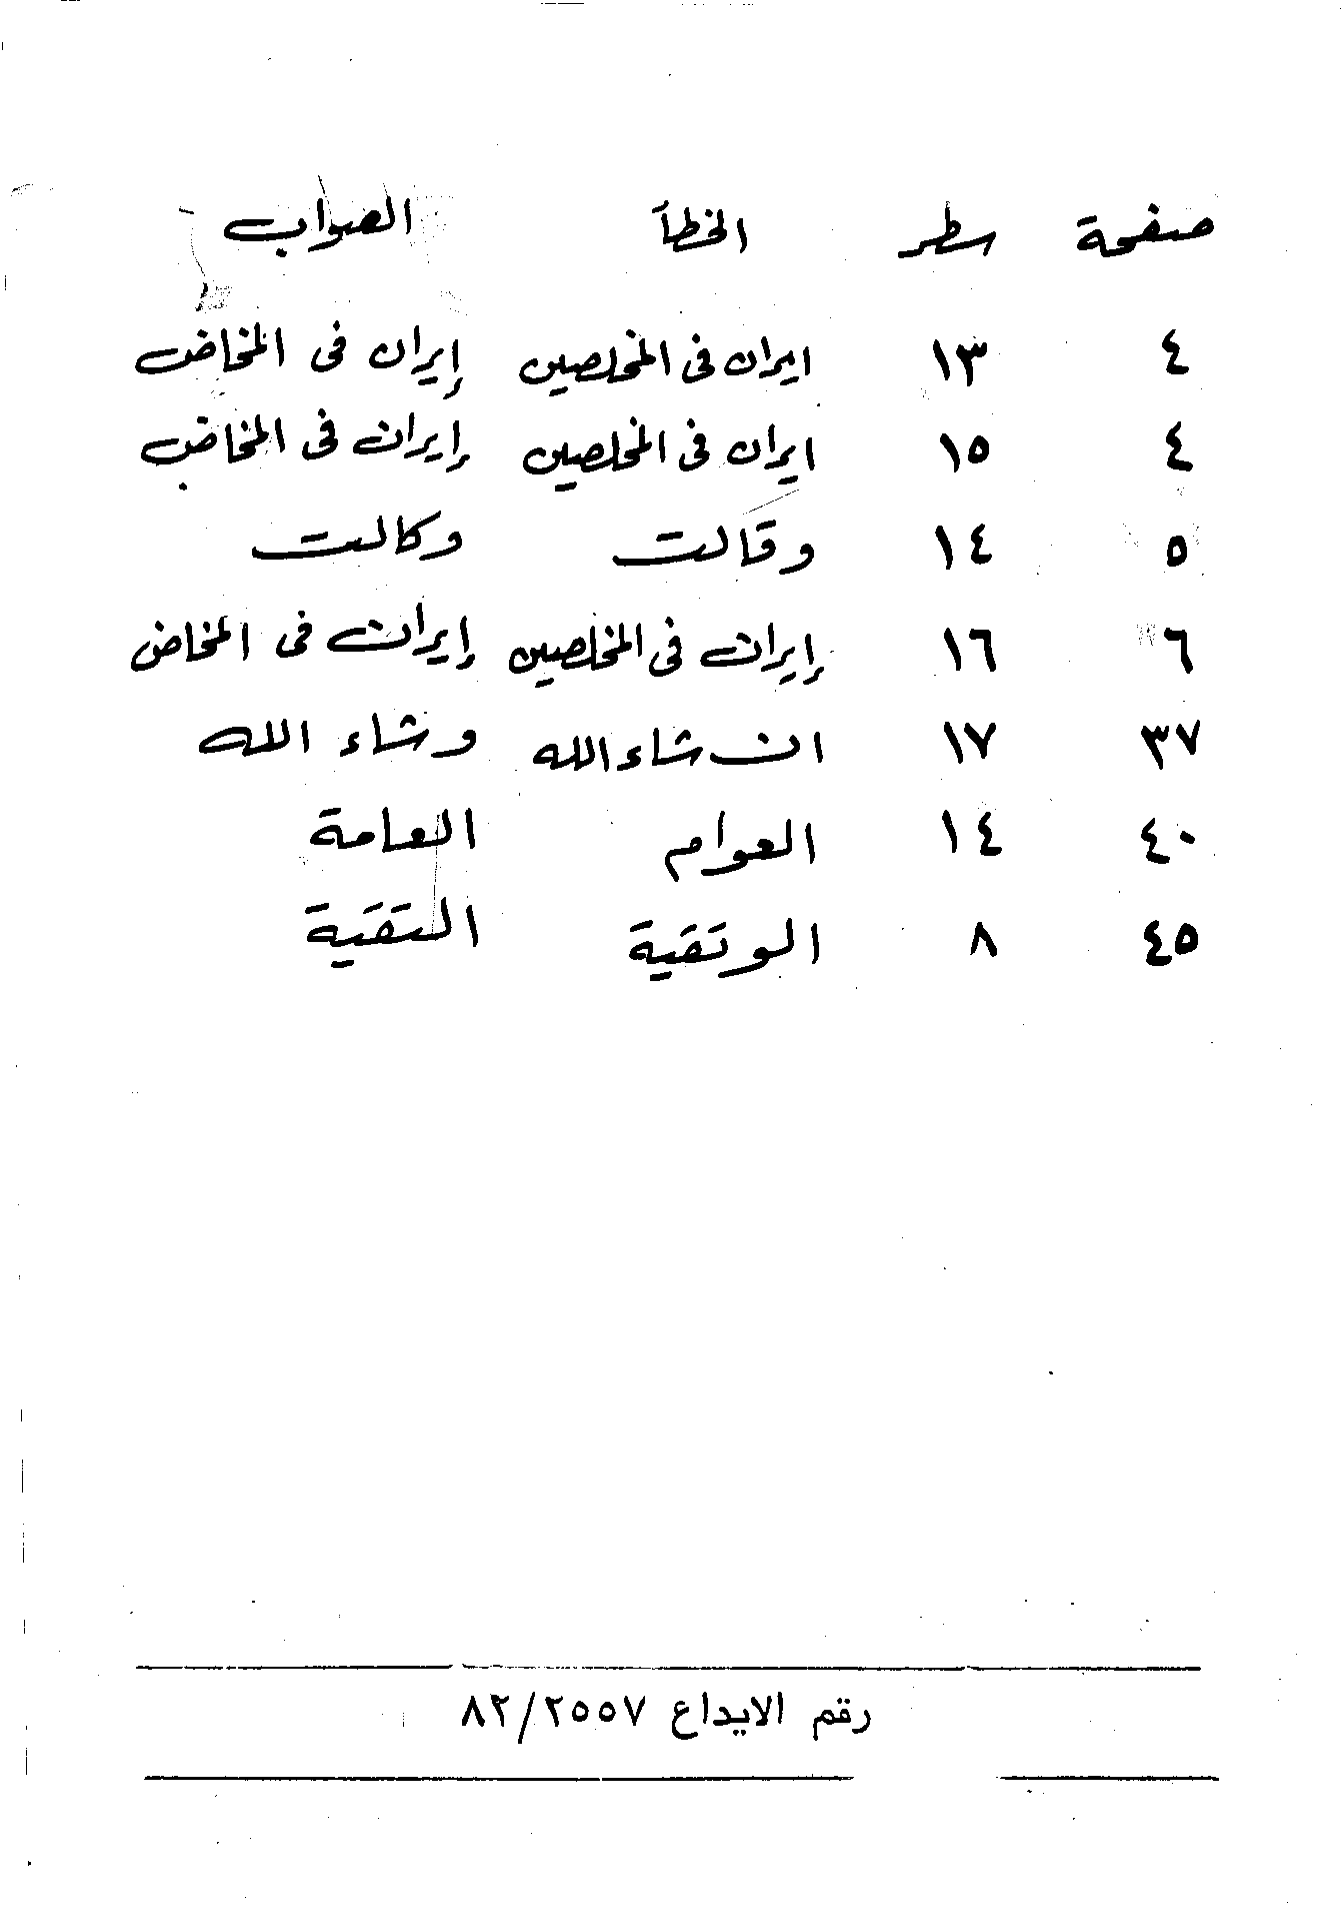 صفحة سطر الخطأ الصواب
٤ ١٣ ايران فى المخلصين إيران فى المخاض
٤ ١٥ ايران فى المخلصين إيران فى المخاض
٥ ١٤ وقالت وكالت
٦ ١٦ إيران فى المخلصين إيران فى المخاض
٣٧ ١٧ ان شاء الله وشاء الله
٤٠ ١٤ العوام العامة
٤٥ ٨ الوتقية التقية
رقم الايداع ٨٢/٢٥٥٧